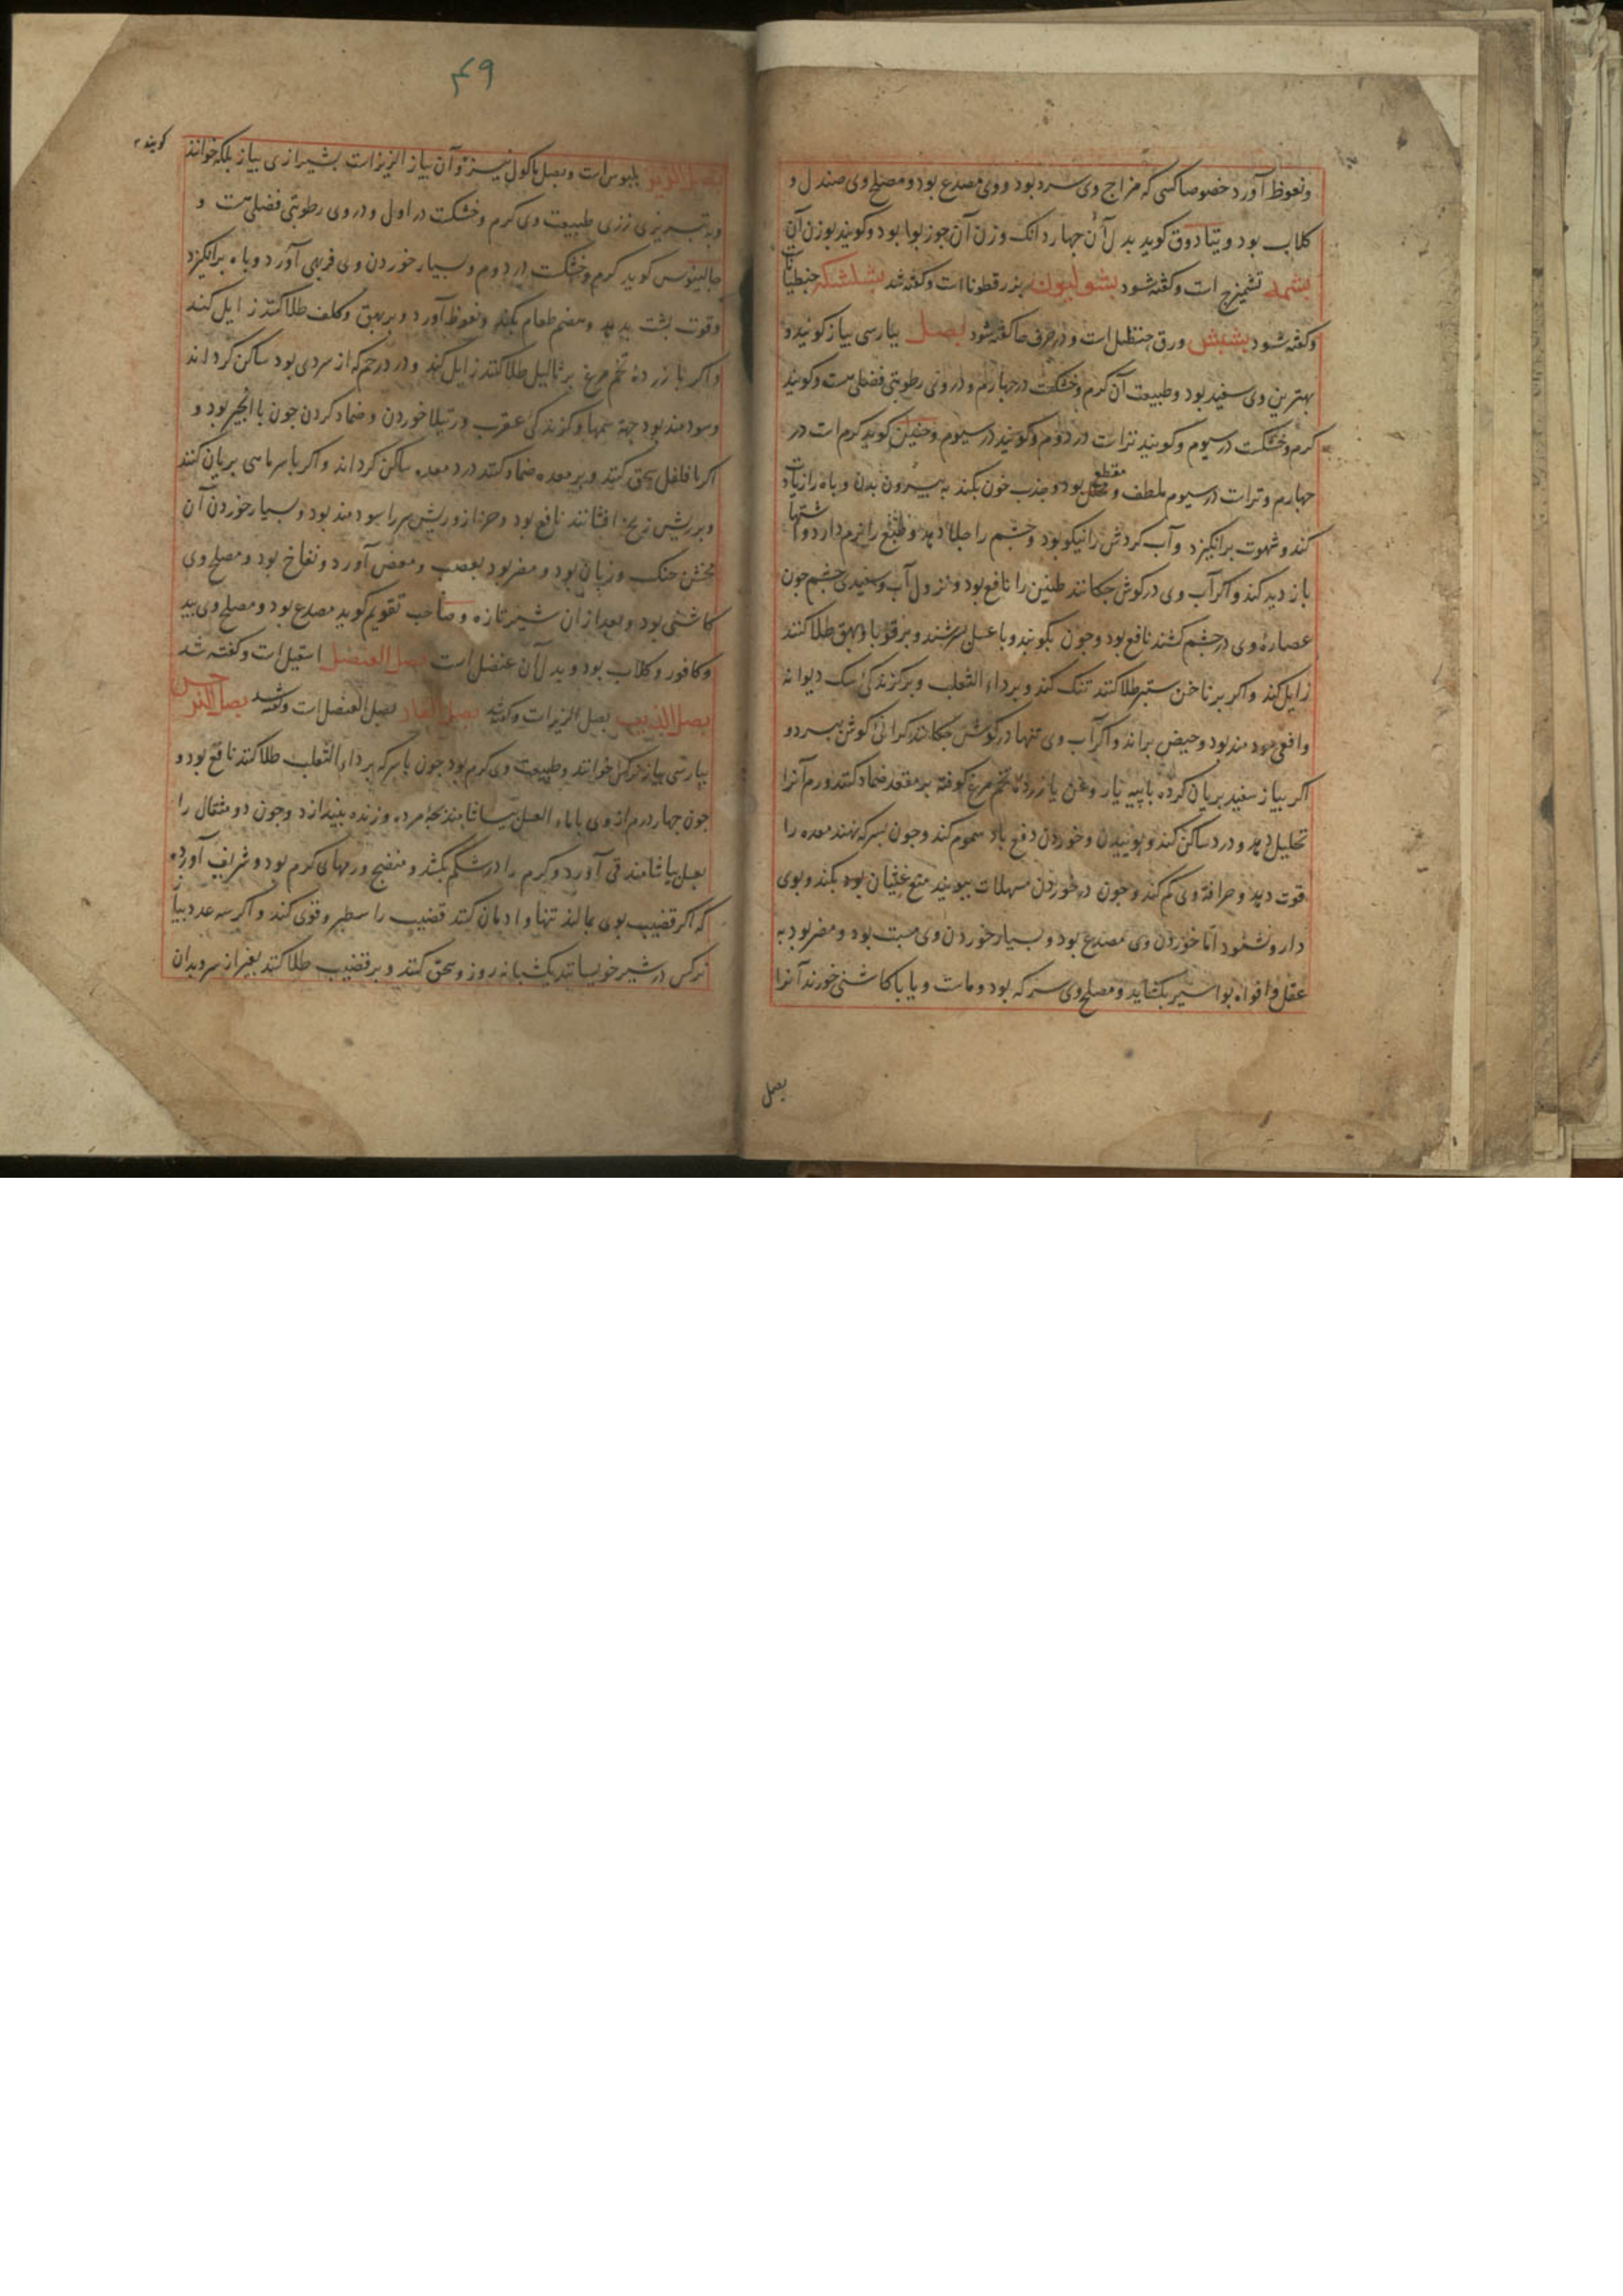 ونعوظ آورد خصوصا کسی که مزاج وی سرد بود و وی مصدع بود و مصلح وی صندل و
کلاب بود و بتادوق کوید بدل آن جهار دانک وزن آن جوز بوا بود و کویند بوزن آن
بشمه تشمیزج است و کفته شود بشولیون بزرقطونا است و کفته شد بشلشکه جنطیانا
وکفته شود بشبش ورق حنظل است و در حرف حا کفته شود بصل بپارسی پیاز کویند و
بهترین وی سفید بود و طبیعت آن کرم و خشکست در جهارم و در وی رطوبتی فضلی هست و کویند
کرم و خشکست در سیوم و کویند ترات در دوم و کویند در سیوم و حنین کوید کرم است در
جهارم و ترات در سیوم ملطف و مقطع بود و جذب خون بکند به بیرون بدن و باه را زیادت
کند و شهوت برانکیزد و آب کردش را نیکو بود و جشم را جلا دهد و طبع را نرم دارد و اشتها
باز دید کند و اکر آب وی در کوش جکانند طنین را نافع بود و نزول آب و سفیدی جشم جون
عصاره وی در جشم کشند نافع بود و جون بکوبند و با عسل بسرشند و بر قوبا و بهق طلا کنند
زایل کند و اکر بر ناخن ستبر طلا کنند تنک کند و بر داء الثعلب و بر کزندکی سک دیوانه
وافعی سودمند بود و حیض براند و اکر آب وی تنها در کوش جکانند کرانی کوش ببرد و
اکر پیاز سفید بریان کرده با پیه یا روغن یا زرده تخم مرغ کوفته بر مقعد ضماد کنند ورم آنرا
تحلیل دهد و درد ساکن کند و بوییدن و خوردن دفع باد سموم کند و جون بسرکه نهند معده را
قوت دهد و حرافة وی کم کند و جون در خوردن مسهلات ببویند منع غثیان بود بکند و بوی
دارو نشنود اما خوردن وی مصدع بود و بسیار خوردن وی مسبت بود و مضر بود به
عقل و افواه بواسیر بکشاید و مصلح وی سرکه بود و ماست و یا با کاشنی خورند آنرا
بصل
۴۹
بصل الزیز بلبوس است و بصل ماکول نیز و آن پیاز الزیز است بشیرازی پیاز بلکه خوانند کویند
وبه تبریزی زری طبیعت وی کرم و خشکست در اول و در وی رطوبتی فضلی هست و
جالینوس کوید کرم و خشکست در دوم و بسیار خوردن وی فربهی آورد و باه برانکیزد
وقوت پشت بدهد و هضم طعام بکند و نعوظ آورد و بر بهق و کلف طلا کنند زایل کند
واکر با زرده تخم مرغ بر ثالیل طلا کنند زایل کند و درد رحم که از سردی بود ساکن کرداند
وسودمند بود جهة سمها و کزندکی عقرب و رتیلا خوردن و ضماد کردن جون با انجیر بود و
اکر با فلفل سحق کنند و بر معده ضماد کنند درد معده ساکن کرداند و اکر با سر ماسی بریان کنند
وبر ریش زنخ افشانند نافع بود و حزاز و ریش سر را سودمند بود و بسیار خوردن آن
مخشن حنک و زبان بود و مضر بود بعصب و مغص آورد و نفاخ بود و مصلح وی
کاشنی بود و بعد از آن شیر تازه و صاحب تقویم کوید مصدع بود و مصلح وی بید
وکافور و کلاب بود و بدل آن عنصل است بصل العنصل اسقیل است و کفته شد
بصل الذیب بصل الزیز است و کفته شد بصل الفار بصل العنصل است و کفته شد بصل النرجس
بپارسی پیاز نرکس خوانند و طبیعت وی کرم بود جون با سرکه بر داء الثعلب طلا کنند نافع بود و
جون جهار درم از وی با ماء العسل بیاشامند بجهٔ مرده و زنده بیندازد و جون دو مثقال را
بعسل بیاشامند قی آورد و کرم را در شکم بکشد و منضج ورمهای کرم بود و شریف آورده
که اکر قضیب بوی بمالند تنها و ادمان کنند قضیب را سطبر و قوی کند و اکر سه عدد پیاز
نرکس در شیر خویسانند یکشبانه روز و سحق کنند و بر قضیب طلا کنند بغیر از سر بدان